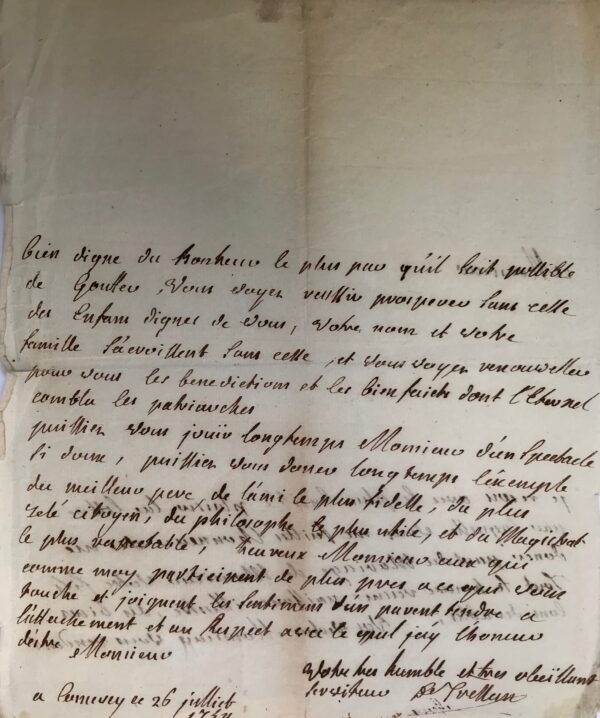 bien digne du bonheur le plus pur qu'il soit possible
de Goutter, vous voyez reussir prosperer sans cesse
des Enfans dignes de vous, votre nom et votre
famille s'accroissent sans cesse, et vous voyez renouveller
pour vous les benedictions et les bienfaits dont l'Eternel
combla les patriarches
puissiez vous jouir longtemps Monsieur d'un Spectacle
si doux, puissiez vous donner longtemps l'exemple
du meilleur pere, de l'ami le plus fidelle, du plus
zelé citoyen, du philosophe le plus utile, et du Magistrat
le plus respectable, heureux Monsieur ceux qui
comme moy participent de plus pres a ce qui vous
touche et joignent les sentimens d'un parent tendre a
l'attachement et au Respect avec lequel j'ay l'honneur
d'être Monsieur
Votre tres humble et tres obeissant
serviteur
a ce 26 juillet